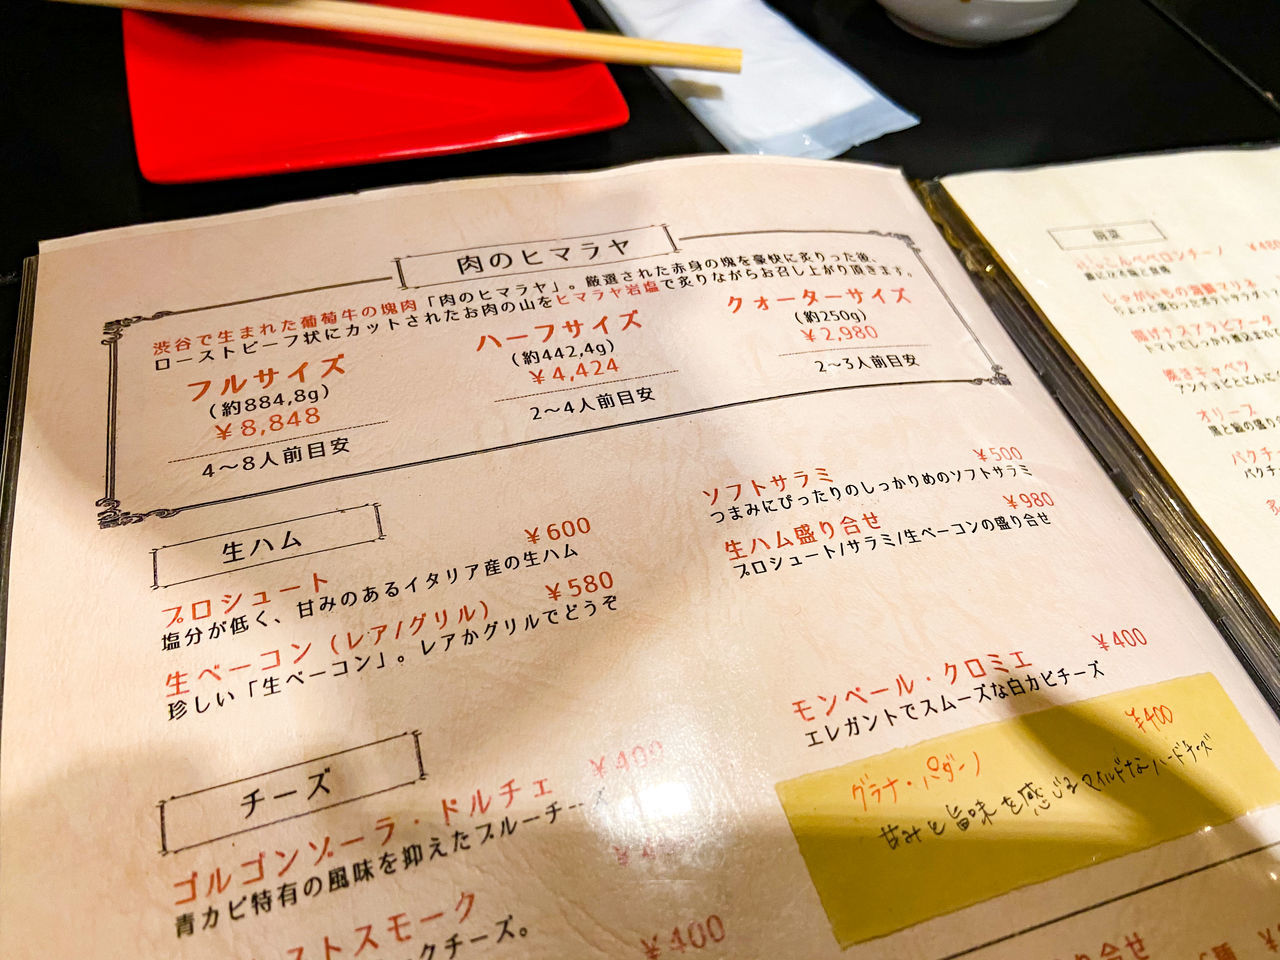 肉のヒマラヤ
渋谷で生まれた葡萄牛の塊肉「肉のヒマラヤ」。厳選された赤身の塊を豪快に炙りった後、
ローストビーフ状にカットされたお肉の山をヒマラヤ岩塩で炙りながらお召し上がり頂きます。
フルサイズ
(約884,8g)
¥8,848
4〜8人前目安
ハーフサイズ
(約442,4g)
¥4,424
2〜4人前目安
クォーターサイズ
(約250g)
¥2,980
2〜3人前目安
生ハム
プロシュート ¥600
塩分が低く、甘みのあるイタリア産の生ハム
生ベーコン(レア/グリル) ¥580
珍しい「生ベーコン」。レアかグリルでどうぞ
ソフトサラミ ¥500
つまみにぴったりのしっかりめのソフトサラミ
生ハム盛り合せ ¥980
プロシュート/サラミ/生ベーコンの盛り合せ
チーズ
ゴルゴンゾーラ・ドルチェ ¥400
青カビ特有の風味を抑えたブルーチーズ
ストスモーク ¥400
クチーズ。
モンペール・クロミエ ¥400
エレガントでスムーズな白カビチーズ
グラナ・パダーノ ¥400
甘みと旨味を感じるマイルドなハードチーズ
り合せ
前菜
ペペロンチーノ ¥480
じゃがいもの マリネ
ちょっと変わったポテトサラダ
揚げナスアラビアータ
トマトでしっかり煮込まれ
焼きキャベツ
アンチョビとどんど
オリーブ
パクチー
パクチ